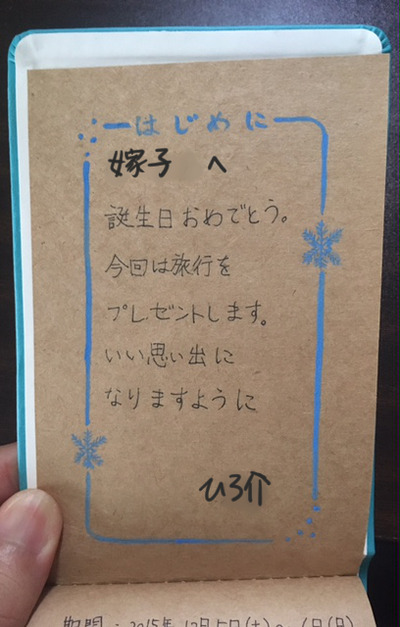 はじめに
嫁子 へ
誕生日おめでとう。
今回は旅行を
プレゼントします。
いい思い出に
なりますように
ひろ介
期間：2015年 12月5日(土)〜 6日(日)